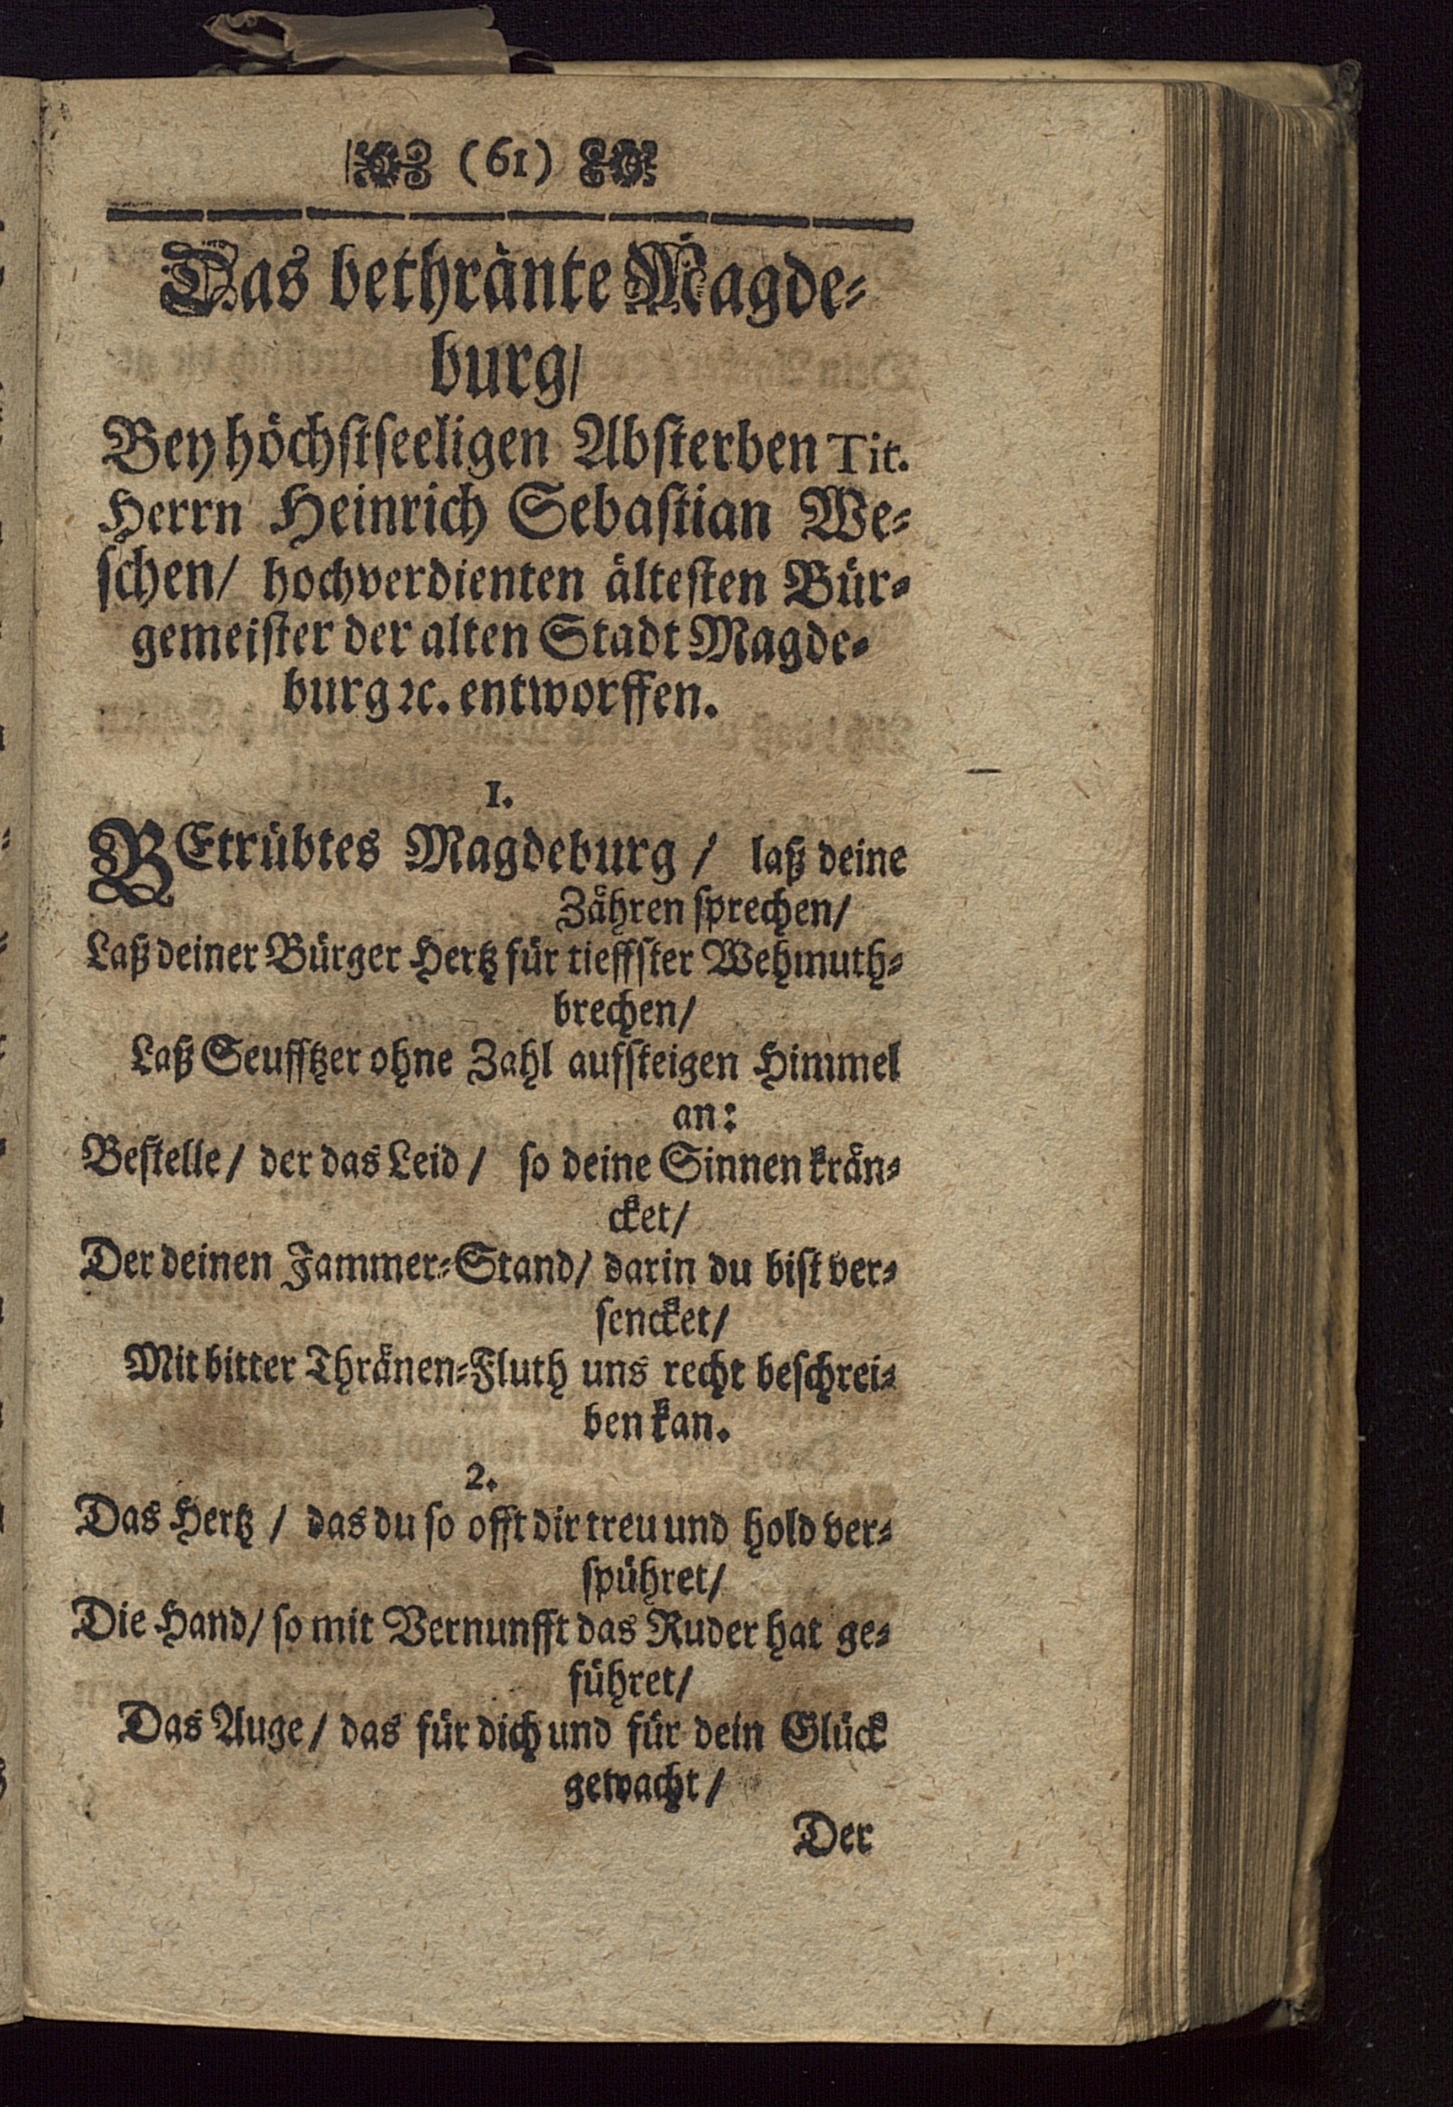 (61)
Das bethränte Magde-
burg/
Bey höchstseeligen Absterben Tit.
Herrn Heinrich Sebastian We-
schen/ hochverdienten ältesten Bür-
gemeister der alten Stadt Magde-
burg ꝛc. entworffen.
1.
BEtrübtes Magdeburg / laß deine
Zähren sprechen/
Laß deiner Bürger Hertz für tieffster Wehmuth-
brechen/
Laß Seufftzer ohne Zahl aufsteigen Himmel
an:
Bestelle/ der das Leid / so deine Sinnen krän-
cket/
Der deinen Jammer-Stand/ darin du bist ver-
sencket/
Mit bitter Thränen-Fluth uns recht beschrei-
ben kan.
2.
Das Hertz / das du so offt dir treu und hold ver-
spühret/
Die Hand/ so mit Vernunfft das Ruder hat ge-
führet/
Das Auge/ das für dich und für dein Glück
gewacht/
Der